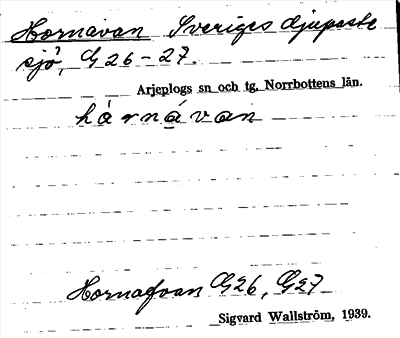 Hornavan Sveriges djupaste
sjö, G 26-27.
Arjeplogs sn och tg. Norrbottens län.
hårnávan
Hornafvan G26, G27
Sigvard Wallström, 1939.